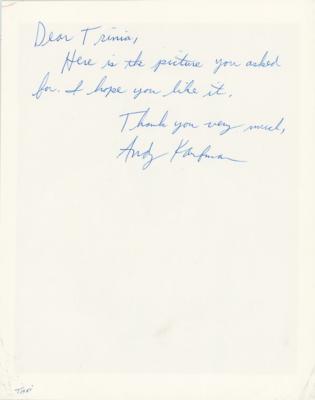 Dear Trinia,
Here is the picture you asked
for. I hope you like it.
Thank you very much,
Andy Kaufman